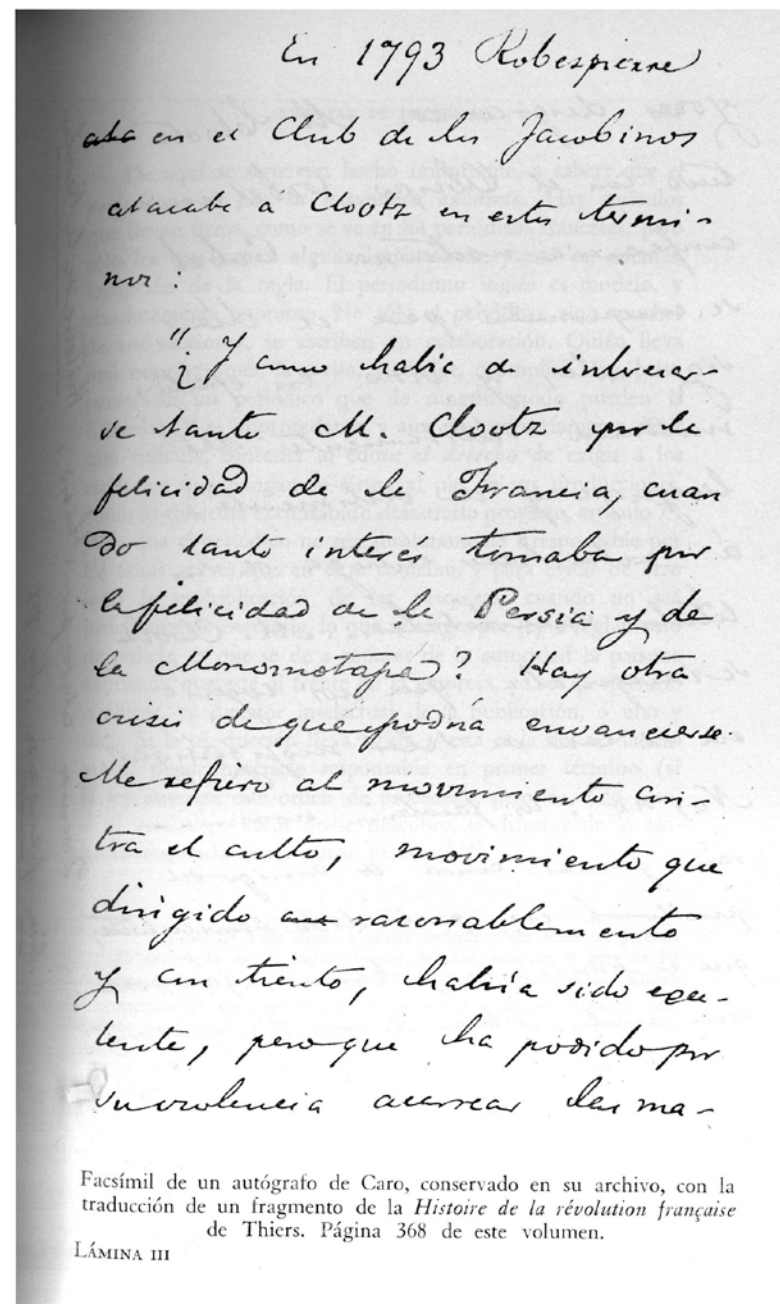 En 1793 Robespierre
ata en el Club de los Jacobinos
atacaba á Clootz en estos termi-
nos:
"¿Y como habia de interesar-
se tanto M. Clootz por la
felicidad de la Francia, cuan
do tanto interes tomaba por
la felicidad de la Persia y de
la Monomotapa? Hay otra
crisis de que podria envanecerse.
Me refiero al movimiento con-
tra el culto, movimiento que
dirigido con razonablemente
y con tiento, habria sido exce-
lente, pero que ha podido por
su violencia acarrear las ma-
Facsímil de un autógrafo de Caro, conservado en su archivo, con la
traducción de un fragmento de la Histoire de la révolution française
de Thiers. Página 368 de este volumen.
LÁMINA III